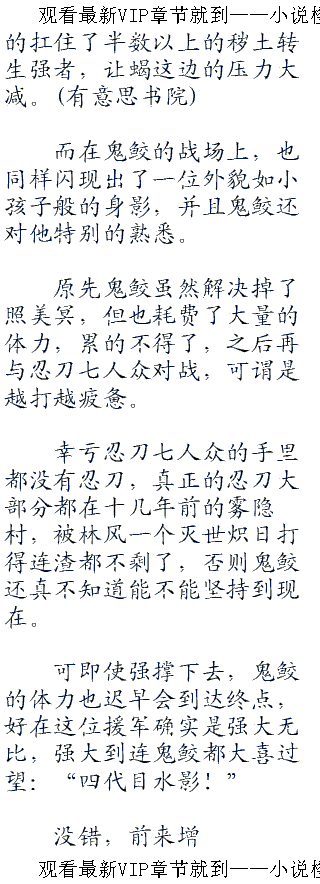 观看最新VIP章节就到——小说检
的扛住了半数以上的秽土转
生强者，让蝎这边的压力大
减。(有意思书院)
而在鬼鲛的战场上，也
同样闪现出了一位外貌如小
孩子般的身影，并且鬼鲛还
对他特别的熟悉。
原先鬼鲛虽然解决掉了
照美冥，但也耗费了大量的
体力，累的不得了，之后再
与忍刀七人众对战，可谓是
越打越疲惫。
幸亏忍刀七人众的手里
都没有忍刀，真正的忍刀大
部分都在十几年前的雾隐
村，被林风一个灭世炽日打
得连渣都不剩了，否则鬼鲛
还真不知道能不能坚持到现
在。
可即使强撑下去，鬼鲛
的体力也迟早会到达终点，
好在这位援军确实是强大无
比，强大到连鬼鲛都大喜过
望：“四代目水影！”
没错，前来增
观看最新VIP章节就到——小说检